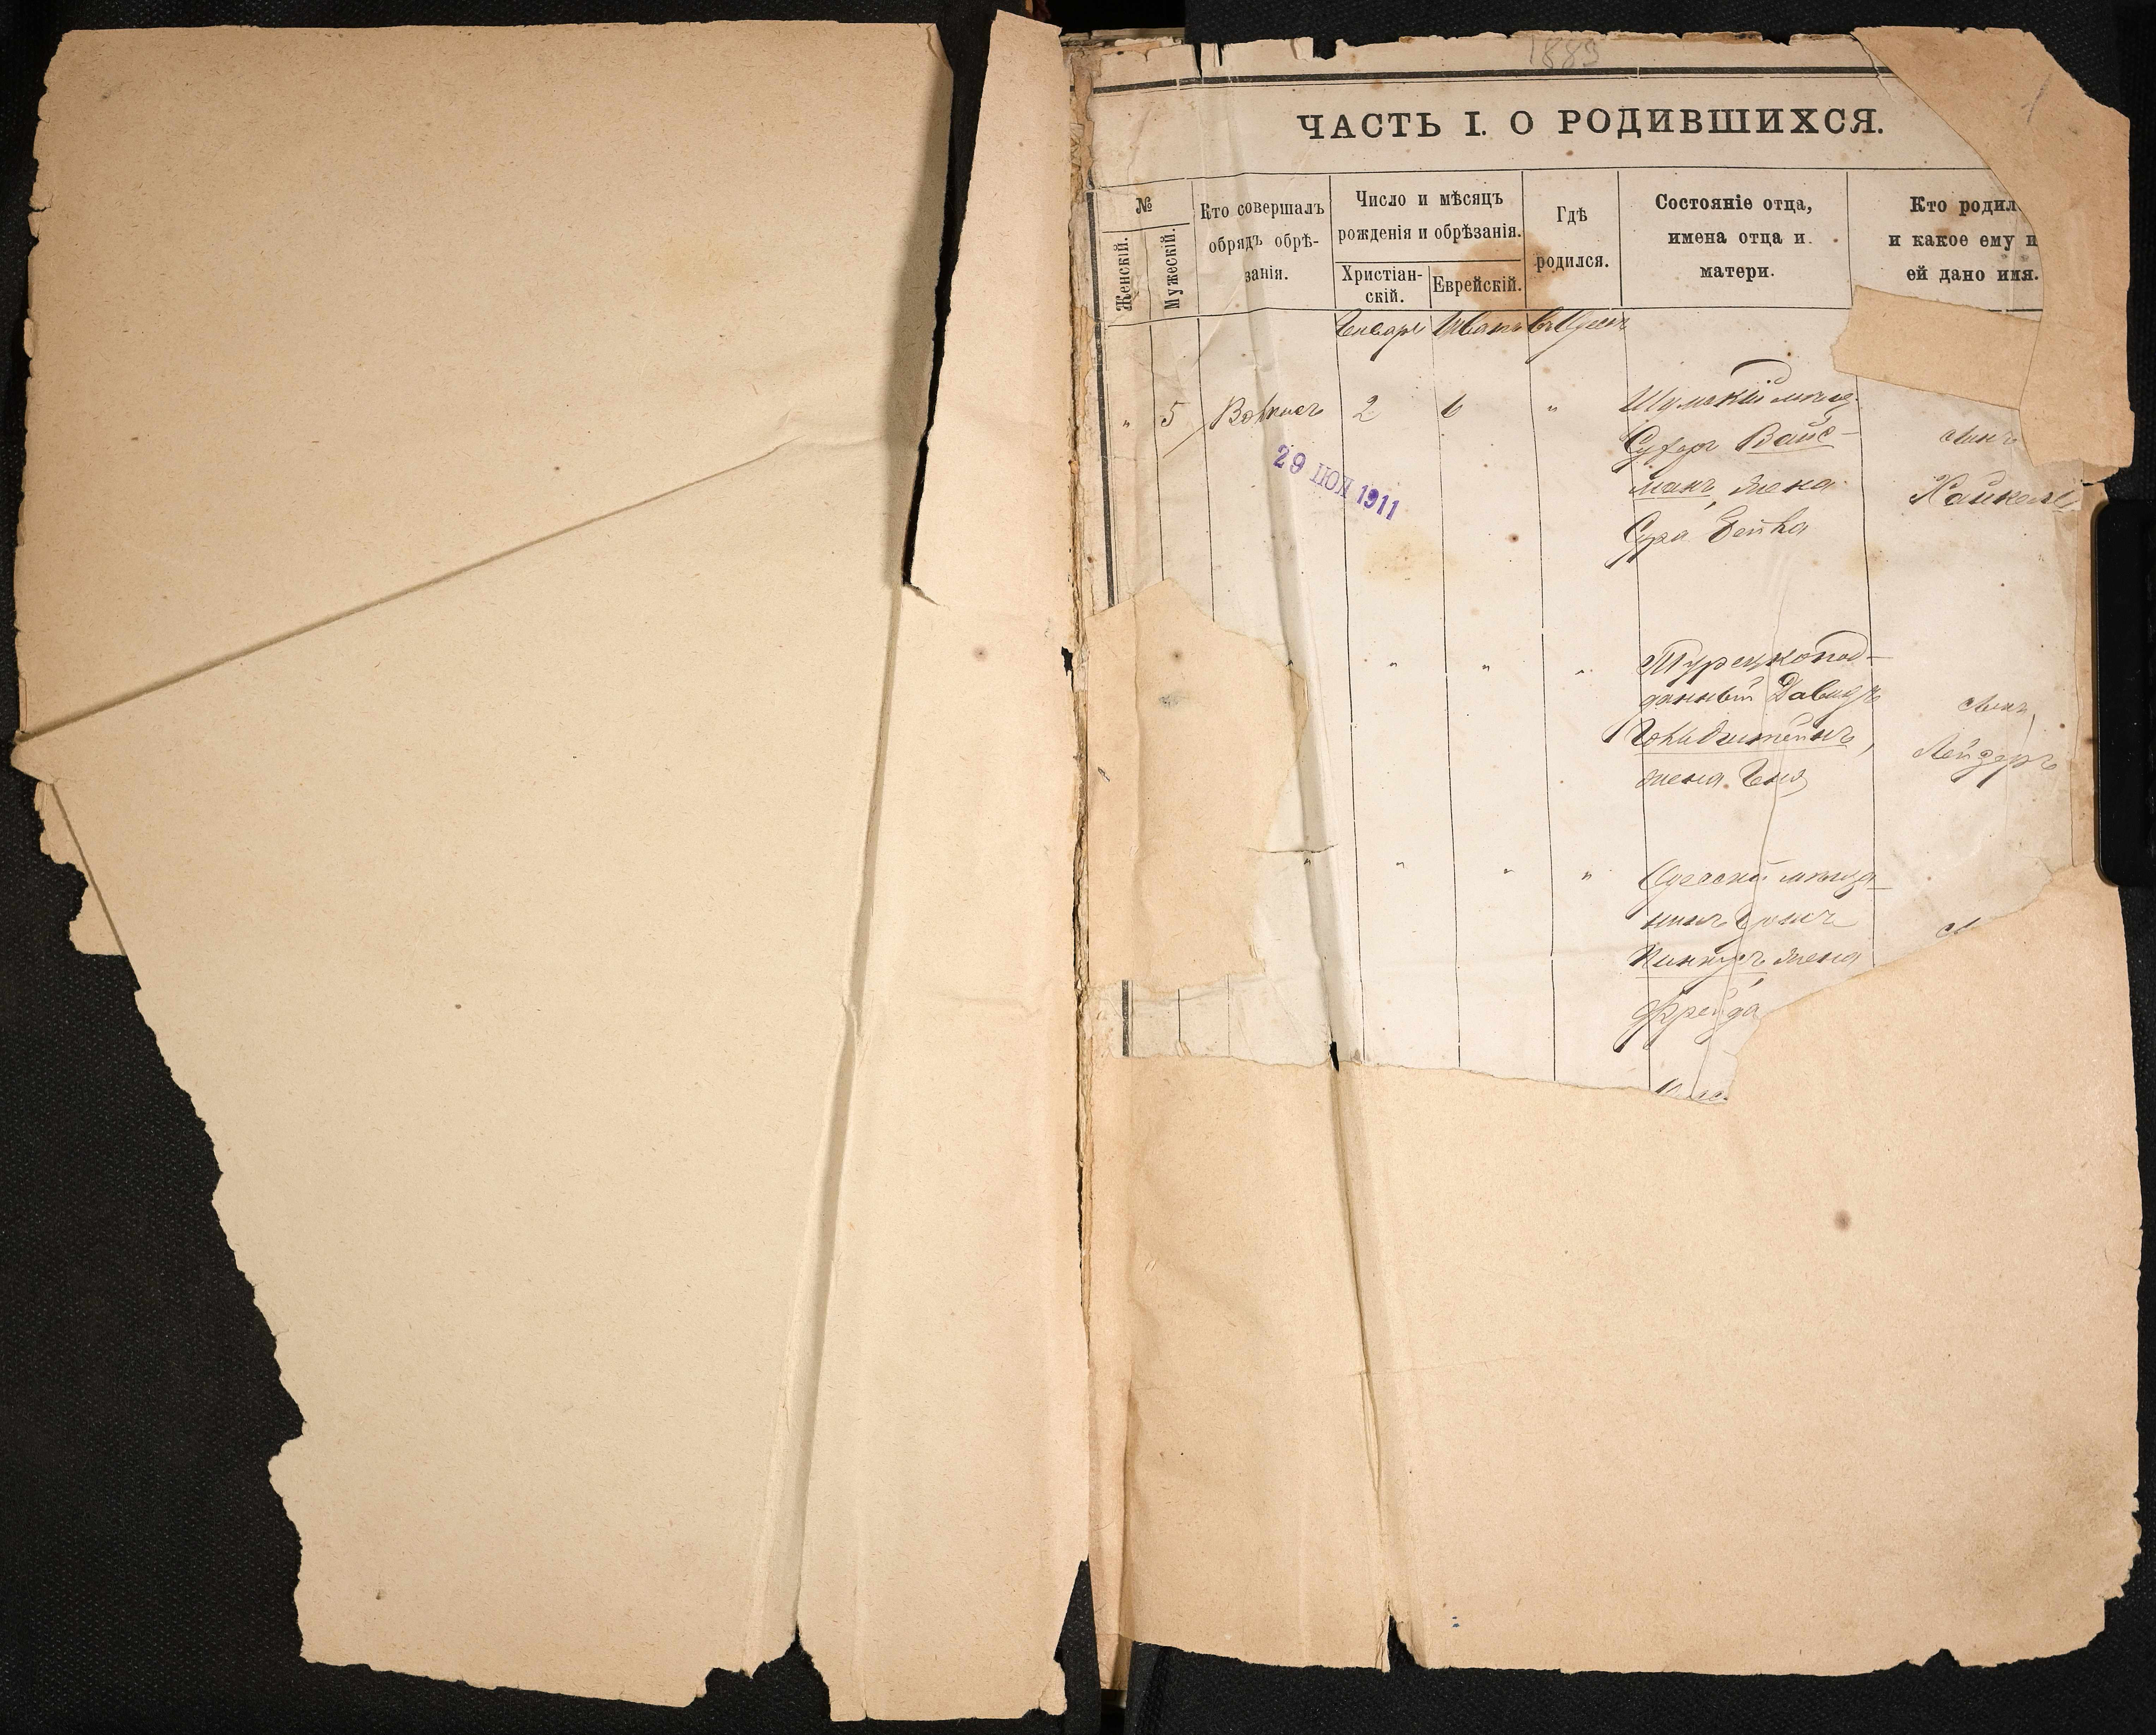 1889
ЧАСТЬ I. О РОДИВШИХСЯ.
№
Женскій.
Мужескій.
Кто совершалъ
обрядъ обрѣ-
занія.
Число и мѣсяцъ
рожденія и обрѣзанія.
Христіан-
скій.
Еврейскій.
Гдѣ
родился.
Состояніе отца,
имена отца и
матери.
Кто родил
и какое ему и
ей дано имя.
Январь Шватъ въ Одессѣ
" 5 2 6 "
Шумскій мѣщ.
Сухеръ Вайс-
манъ, жена
Сура Бейла
сынъ
Хайкель
29 НОЯ 1911
" " "
Турецкопод-
данный Давидъ
Гольдштейнъ,
жена Геня
сынъ,
Лейзеръ
" " " "
Одесскій мѣща-
нинъ
Пинкусъ, жена
Фрейда